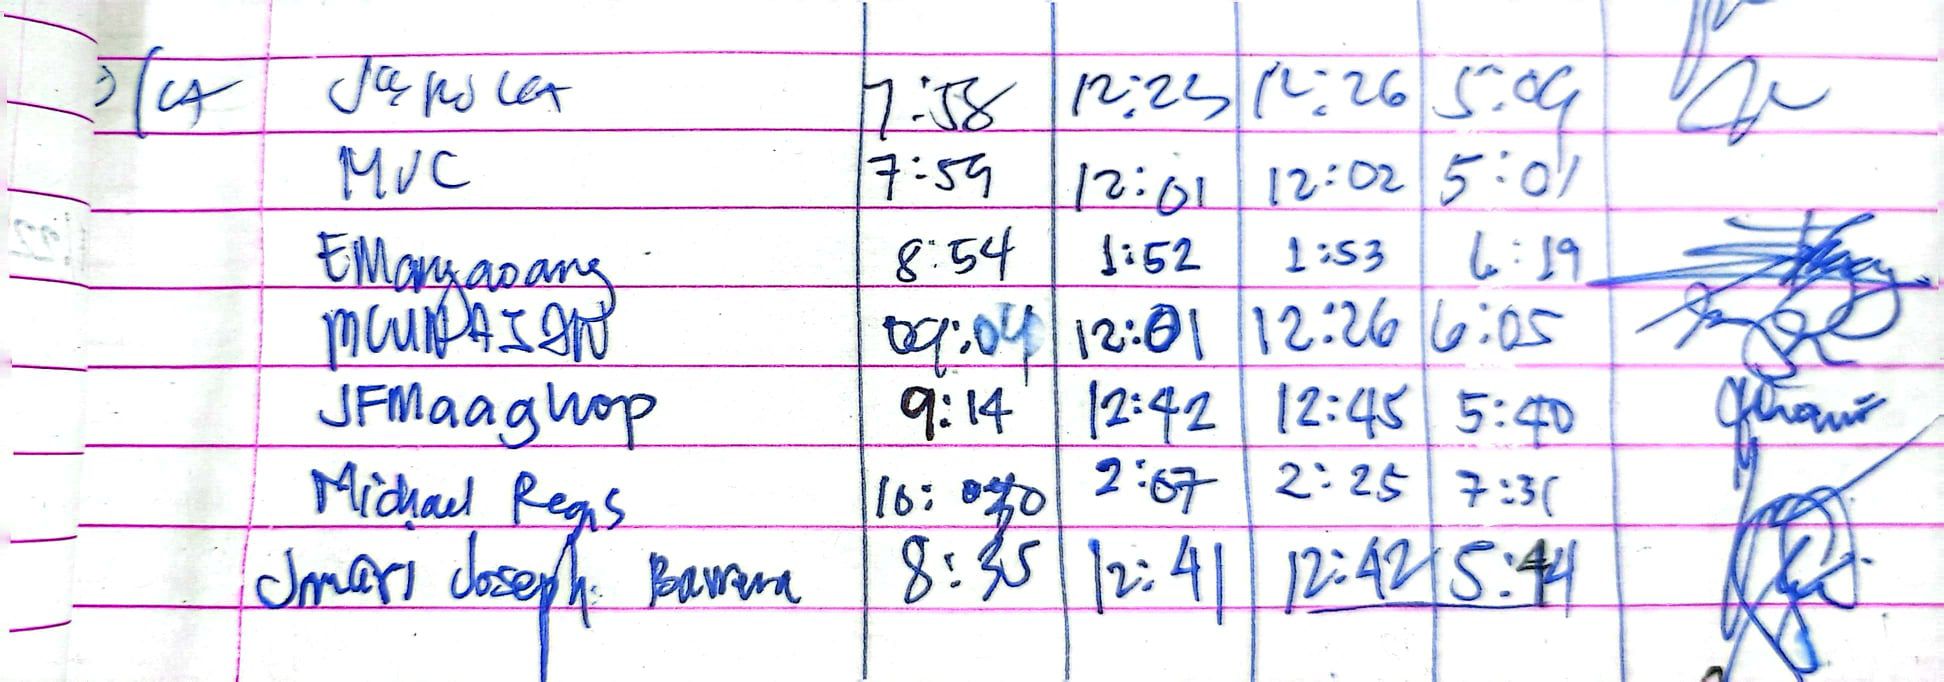 7:58 12:23 12:26 5:09
MVC 7:59 12:01 12:02 5:01
EMangaoang 8:54 1:52 1:53 6:19
09:04 12:01 12:26 6:05
JFMaaghop 9:14 12:42 12:45 5:40
Michael Regis 10: 2:07 2:25 7:31
Jmari Joseph 8:35 12:41 12:42 5:44